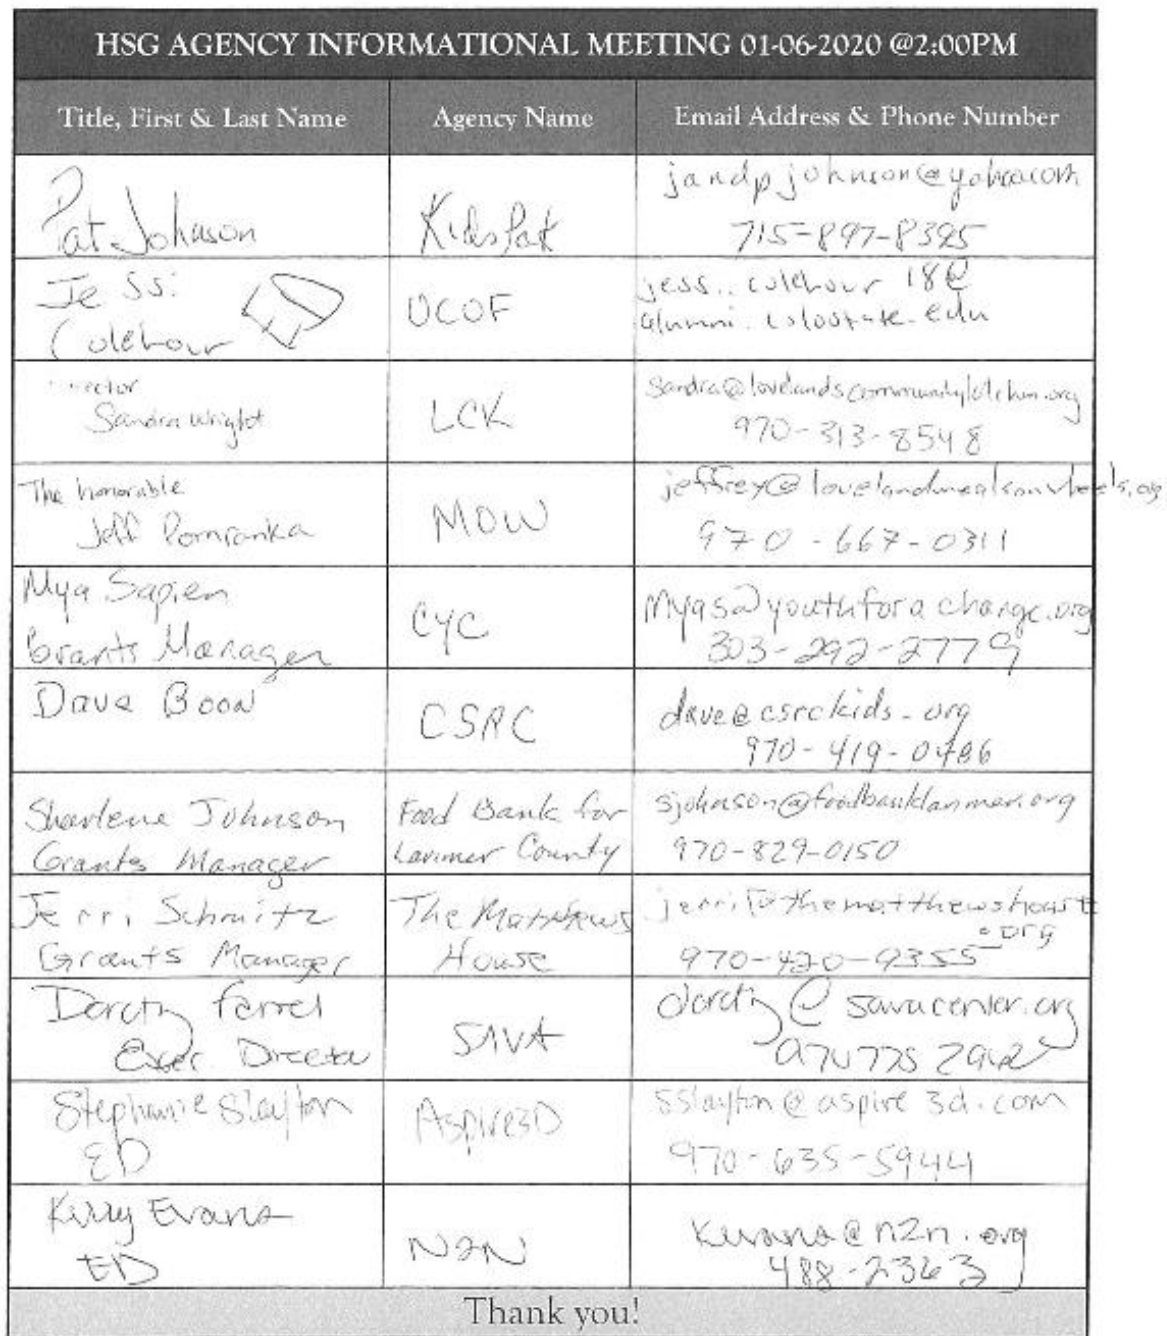 HSG AGENCY INFORMATIONAL MEETING 01-06-2020 @2:00PM
Title, First & Last Name
Agency Name
Email Address & Phone Number
Pat Johnson
KidsPak
jandpjohnson@yahoo.com
715-897-8395
Jessi
Colehour
OCOF
jessi.colehour 18@
alumni.colostate.edu
Director
Sandra Wright
LCK
sandra@lovelandscommunitykitchen.org
970-313-8548
The honorable
Jeff Pomranka
MOW
jeffrey@lovelandmealsonwheels.org
970-667-0311
Mya Sapien
Grants Manager
CYC
Myas@youthforachange.org
303-292-2779
Dave Boon
CSRC
dave@csrckids.org
970-419-0486
Sharlene Johnson
Grants Manager
Food Bank for
Larimer County
sjohnson@foodbanklarimer.org
970-829-0150
Jerri Schmitz
Grants Manager
The Matthews
House
jerri@thematthewshouse
.org
970-420-9355
Exec. Director
SAVA
@savacenter.org
970 775 2942
Stephanie Slayton
ED
Aspire3D
sslayton@aspire3d.com
970-635-5944
Evans
ED
N2N
@n2n.org
488-2363
Thank you!